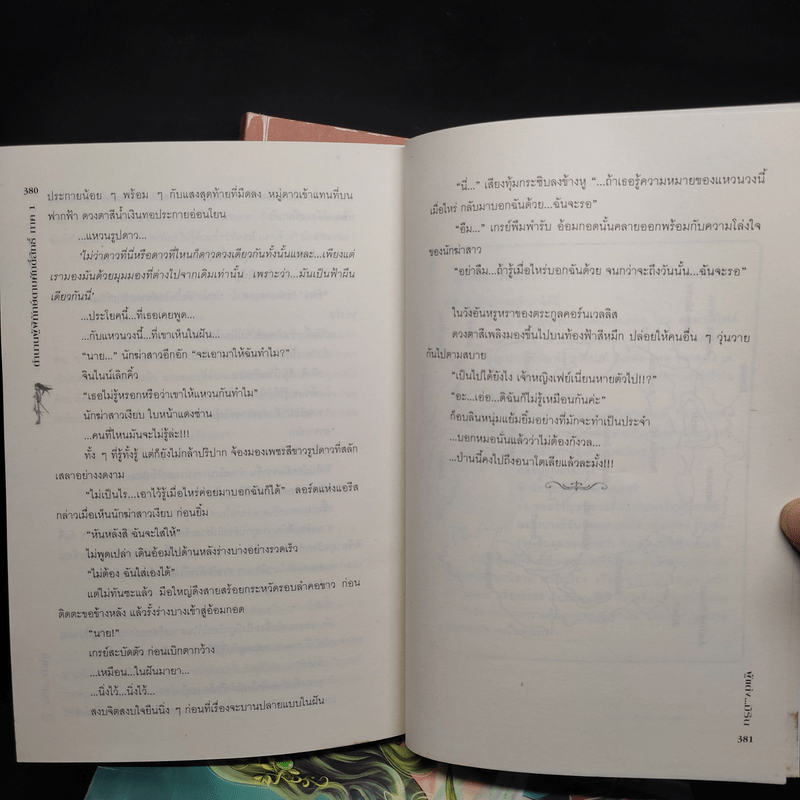 380
ประกายน้อย ๆ พร้อม ๆ กับแสงสุดท้ายที่มืดลง หมู่ดาวเข้าแทนที่บน
ฟากฟ้า ดวงตาสีน้ำเงินทอประกายอ่อนโยน
...แหวนรูปดาว...
'ไม่ว่าดาวที่นี่หรือดาวที่ไหนก็ดาวดวงเดียวกันทั้งนั้นแหละ...เพียงแต่
เรามองมันด้วยมุมมองที่ต่างไปจากเดิมเท่านั้น เพราะว่า...มันเป็นฟ้าผืน
เดียวกันนี่'
...ประโยคนี้...ที่เธอเคยพูด...
...กับแหวนวงนี้...ที่เขาเห็นในฝัน...
"นาย..." นักฆ่าสาวอึกอัก "จะเอามาให้ฉันทำไม?"
จินไนน์เลิกคิ้ว
"เธอไม่รู้หรอกหรือว่าเขาให้แหวนกันทำไม"
นักฆ่าสาวเงียบ ใบหน้าแดงซ่าน
...คนที่ไหนมันจะไม่รู้ล่ะ!!!
ทั้ง ๆ ที่รู้ทั้งรู้ แต่ก็ยังไม่กล้าปริปาก จ้องมองเพชรสีขาวรูปดาวที่สลัก
เสลาอย่างงดงาม
"ไม่เป็นไร...เอาไว้รู้เมื่อไหร่ค่อยมาบอกฉันก็ได้" ลอร์ดแห่งแอรีส
กล่าวเมื่อเห็นนักฆ่าสาวเงียบ ก่อนยิ้ม
"หันหลังสิ ฉันจะใส่ให้"
ไม่พูดเปล่า เดินอ้อมไปด้านหลังร่างบางอย่างรวดเร็ว
"ไม่ต้อง ฉันใส่เองได้"
แต่ไม่ทันซะแล้ว มือใหญ่ดึงสายสร้อยกระหวัดรอบลำคอขาว ก่อน
ติดตะขอข้างหลัง แล้วรั้งร่างบางเข้าสู่อ้อมกอด
"นาย!"
เกรย์สะบัดตัว ก่อนเบิกตากว้าง
...เหมือน...ในฝันมายา...
...นิ่งไว้...นิ่งไว้...
สงบจิตสงบใจยืนนิ่ง ๆ ก่อนที่เรื่องจะบานปลายแบบในฝัน
"นี่..." เสียงทุ้มกระซิบลงข้างหู "...ถ้าเธอรู้ความหมายของแหวนวงนี้
เมื่อไหร่ กลับมาบอกฉันด้วย...ฉันจะรอ"
"อืม..." เกรย์พึมพำรับ อ้อมกอดนั้นคลายออกพร้อมกับความโล่งใจ
ของนักฆ่าสาว
"อย่าลืม...ถ้ารู้เมื่อไหร่บอกฉันด้วย จนกว่าจะถึงวันนั้น...ฉันจะรอ"
ในวังอันหรูหราของตระกูลคอร์นเวลลิส
ดวงตาสีเพลิงมองขึ้นไปบนท้องฟ้าสีหมึก ปล่อยให้คนอื่น ๆ วุ่นวาย
กันไปตามสบาย
"เป็นไปได้ยังไง เจ้าหญิงเฟย์เนี่ยนหายตัวไป!!?"
"อะ...เอ่อ...ดิฉันก็ไม่รู้เหมือนกันค่ะ"
ก็อบลินหนุ่มแย้มยิ้มอย่างที่มักจะทำเป็นประจำ
...บอกหมอนั่นแล้วว่าไม่ต้องกังวล...
...ป่านนี้คงไปถึงอนาโตเลียแล้วละมั้ง!!!
381